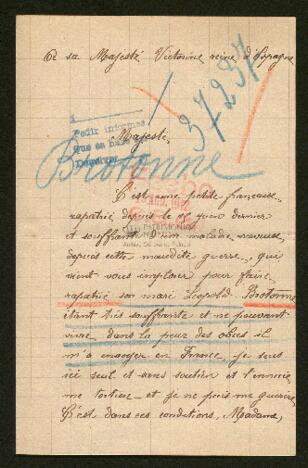 A sa Majesté Victorine reine d'Espagne
37237
Pedir informes
Que se hace
Majesté,
Brotonne
C'est une petite française
rapatriée depuis le 25 juin dernier
et souffrant d'une maladie nerveuse
depuis cette maudite guerre, qui
vient vous implorer pour faire
rapatrié son mari Léopold Brotonne
étant très souffrante et ne pouvant
vivre dans la peur des obus il
m'a envoyer en France, je suis
ici seul et sans soutien et l'ennuie
me torture et je ne puis me guérir
C'est dans ces conditions, Madame,